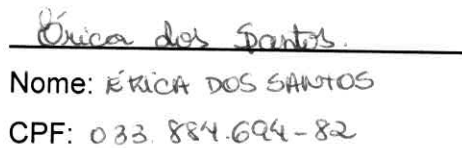 Érica dos Santos.
Nome: ÉRICA DOS SANTOS
CPF: 033.884.694-82